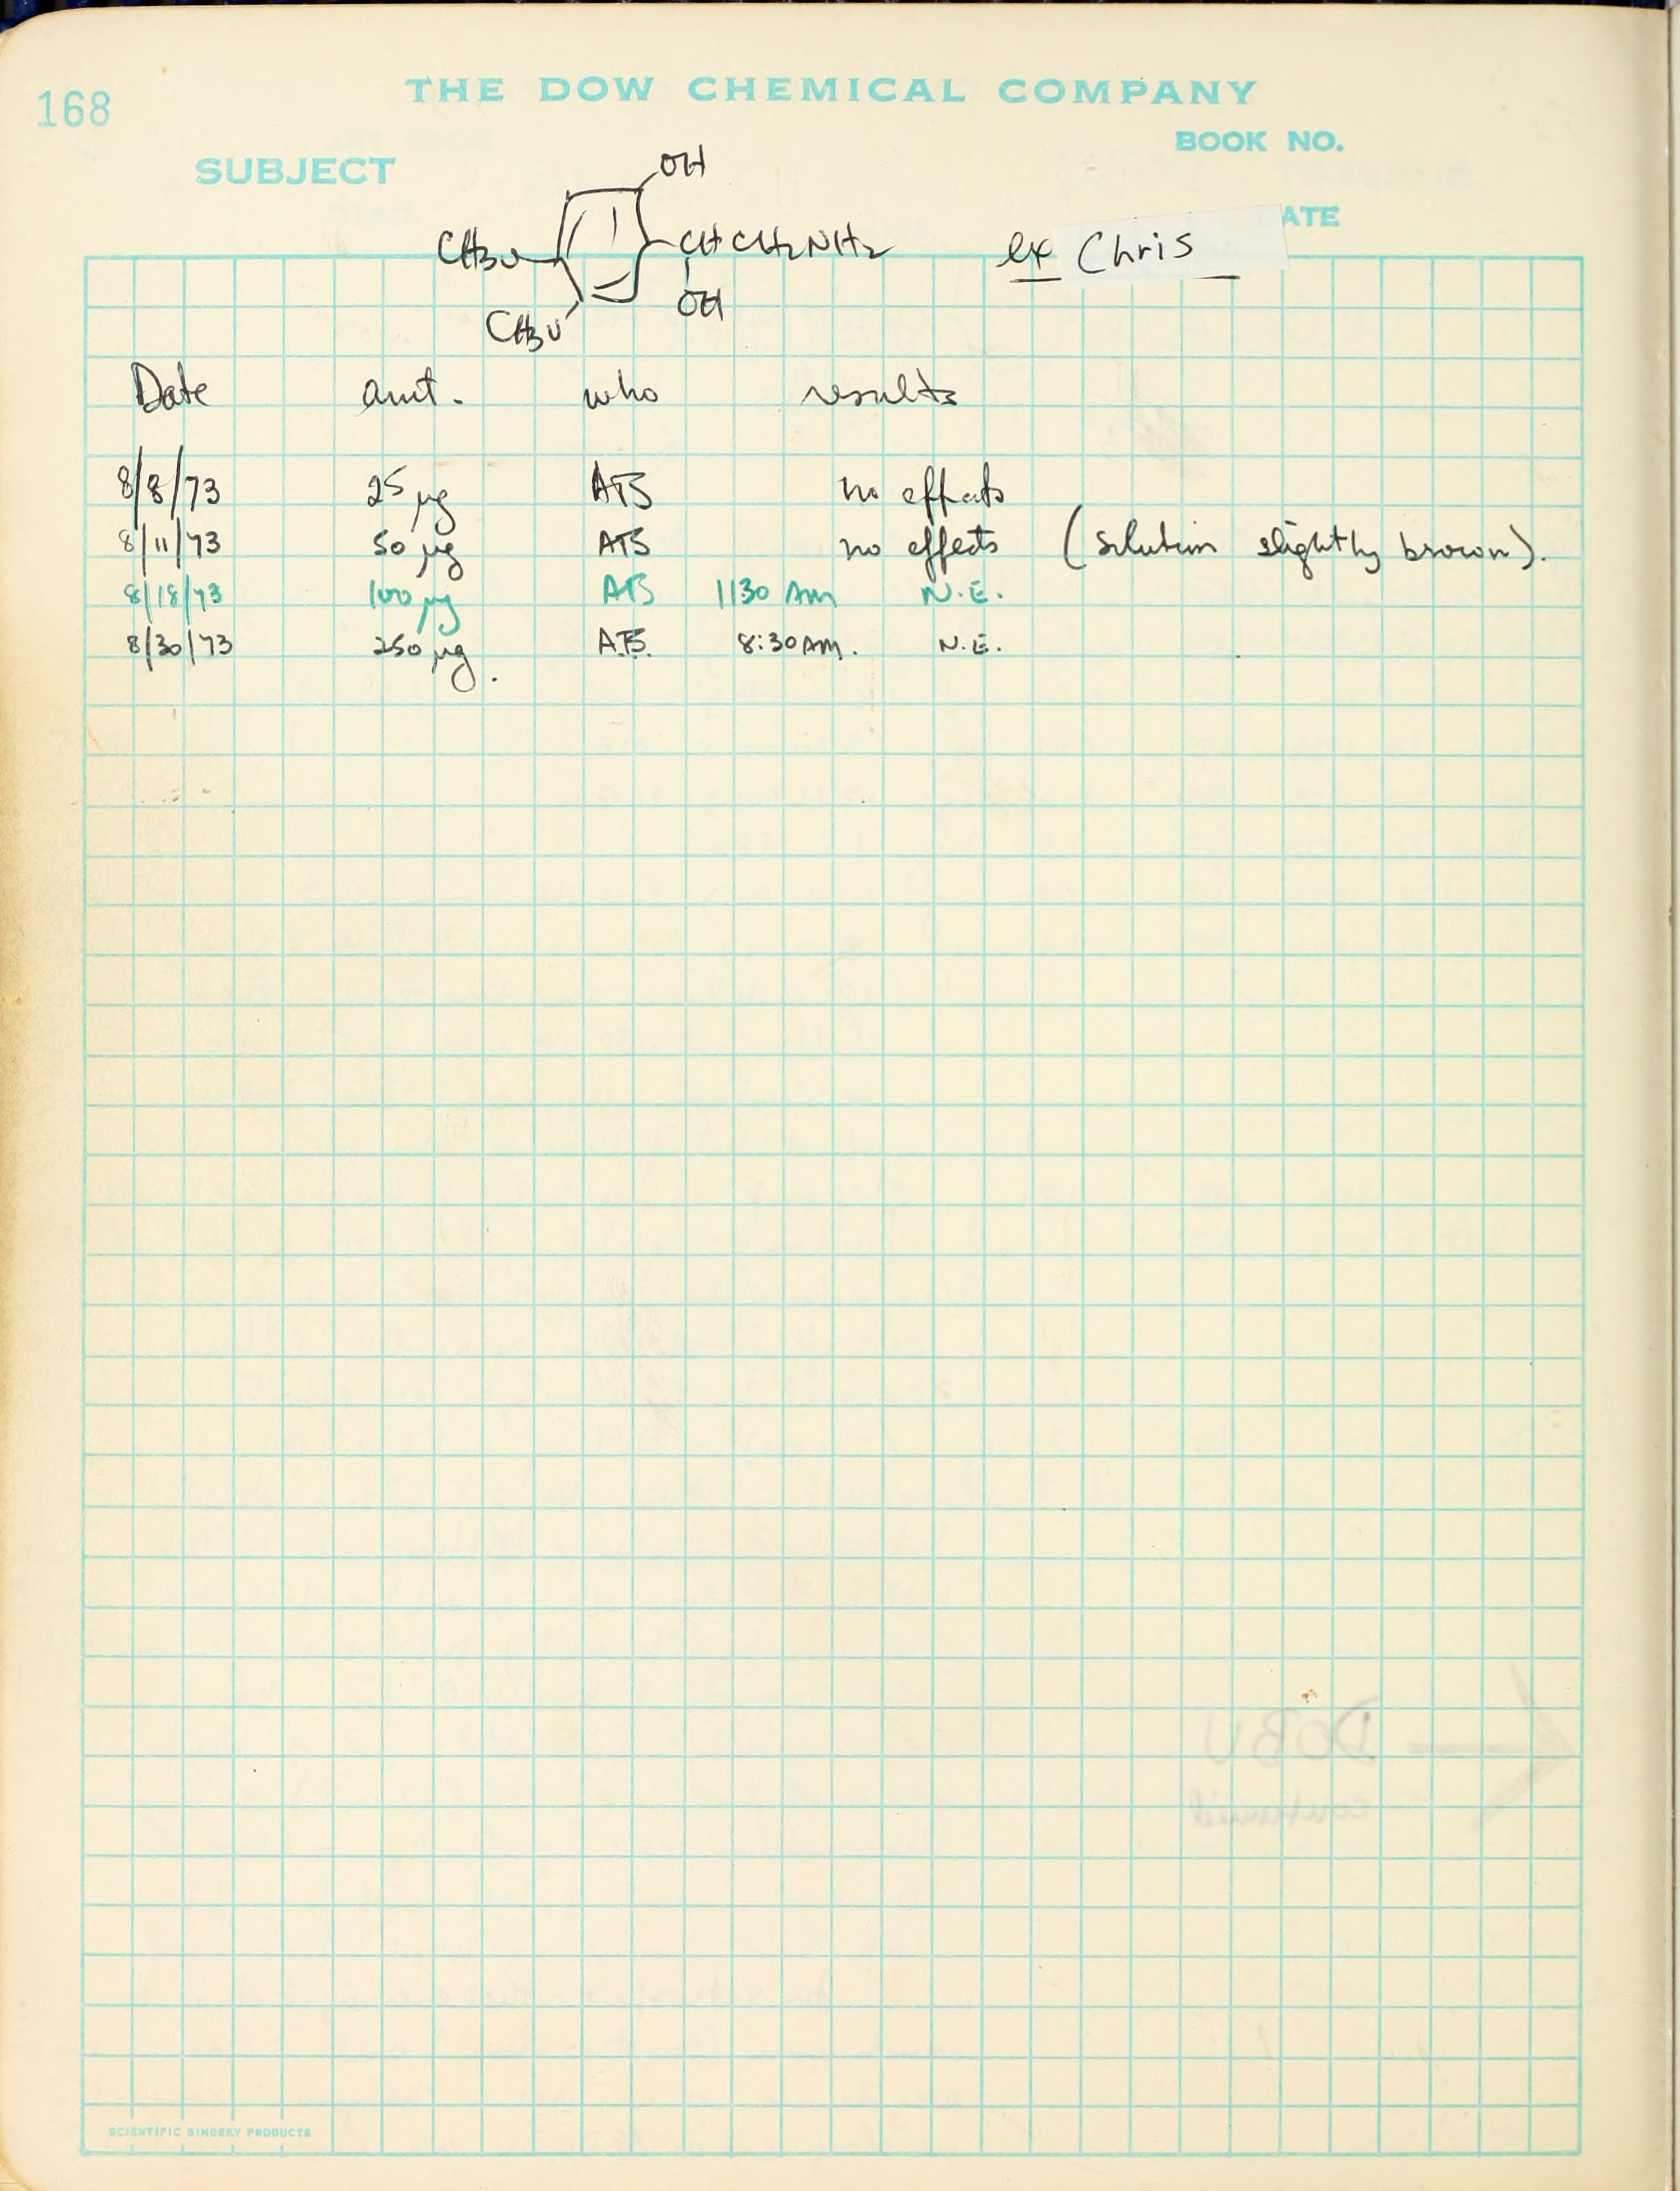 168
THE DOW CHEMICAL COMPANY
BOOK NO.
SUBJECT
ATE
OH
CH3O CHCH2NH2 ex Chris
OH
CH3O
Date amt. who results
8/8/73 25 µg ATS no effects
8/11/73 50 µg ATS no effects (solution slightly brown).
8/18/73 100 µg ATS 1130 AM N.E.
8/30/73 250 µg. ATS. 8:30 AM. N.E.
DOBU
continued
SCIENTIFIC BINDERY PRODUCTS